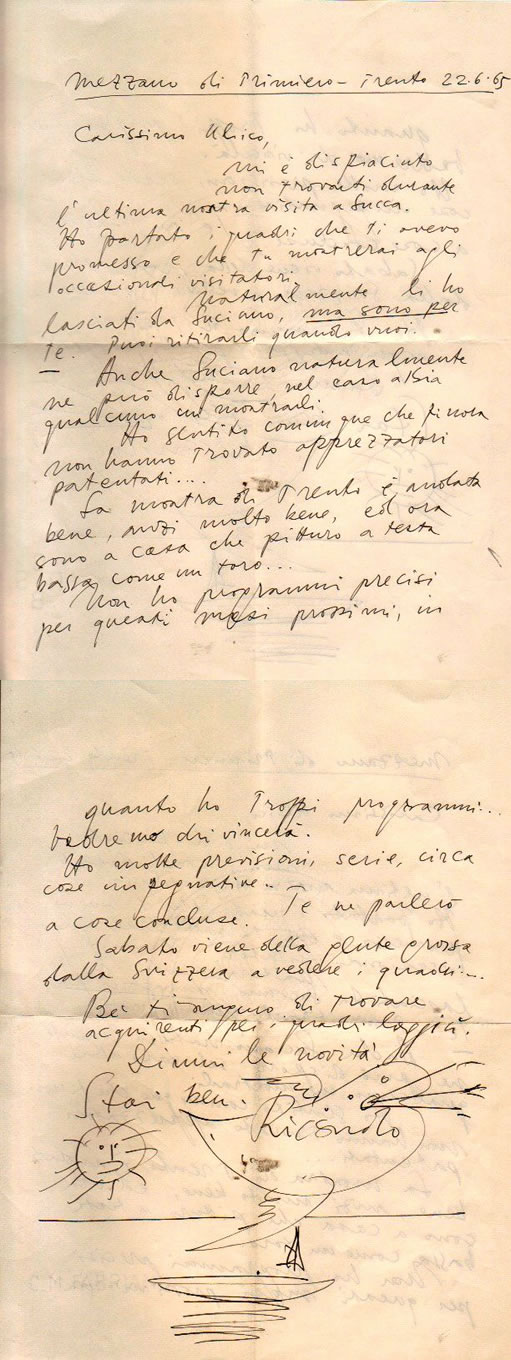 Mezzano di Primiero - Trento 22.6.65
Carissimo Ulrico,
mi è dispiaciuto
non trovarti durante
l'ultima nostra visita a Lucca.
Ho portato i quadri che ti avevo
promesso e che tu mostrerai agli
occasionali visitatori.
Naturalmente li ho
lasciati da Luciano, ma sono per
te. Puoi ritirarli quando vuoi.
Anche Luciano naturalmente
ne può disporre, nel caso abbia
qualcuno cui mostrarli.
Ho sentito comunque che finora
non hanno trovato apprezzatori
patentati...
La mostra di Trento è andata
bene, anzi molto bene, ed ora
sono a casa che pitturo a testa
bassa come un toro...
Non ho programmi precisi
per questi mesi prossimi, in
quanto ho troppi programmi...
vedremo chi vincerà.
Ho molte previsioni, serie, circa
cose impegnative..
Te ne parlerò
a cose concluse.
Sabato viene della gente grossa
dalla Svizzera a vedere i quadri...
Bè ti auguro di trovare
acquirenti per i quadri laggiù.
Dimmi le novità
Stai ben.
Riccardo